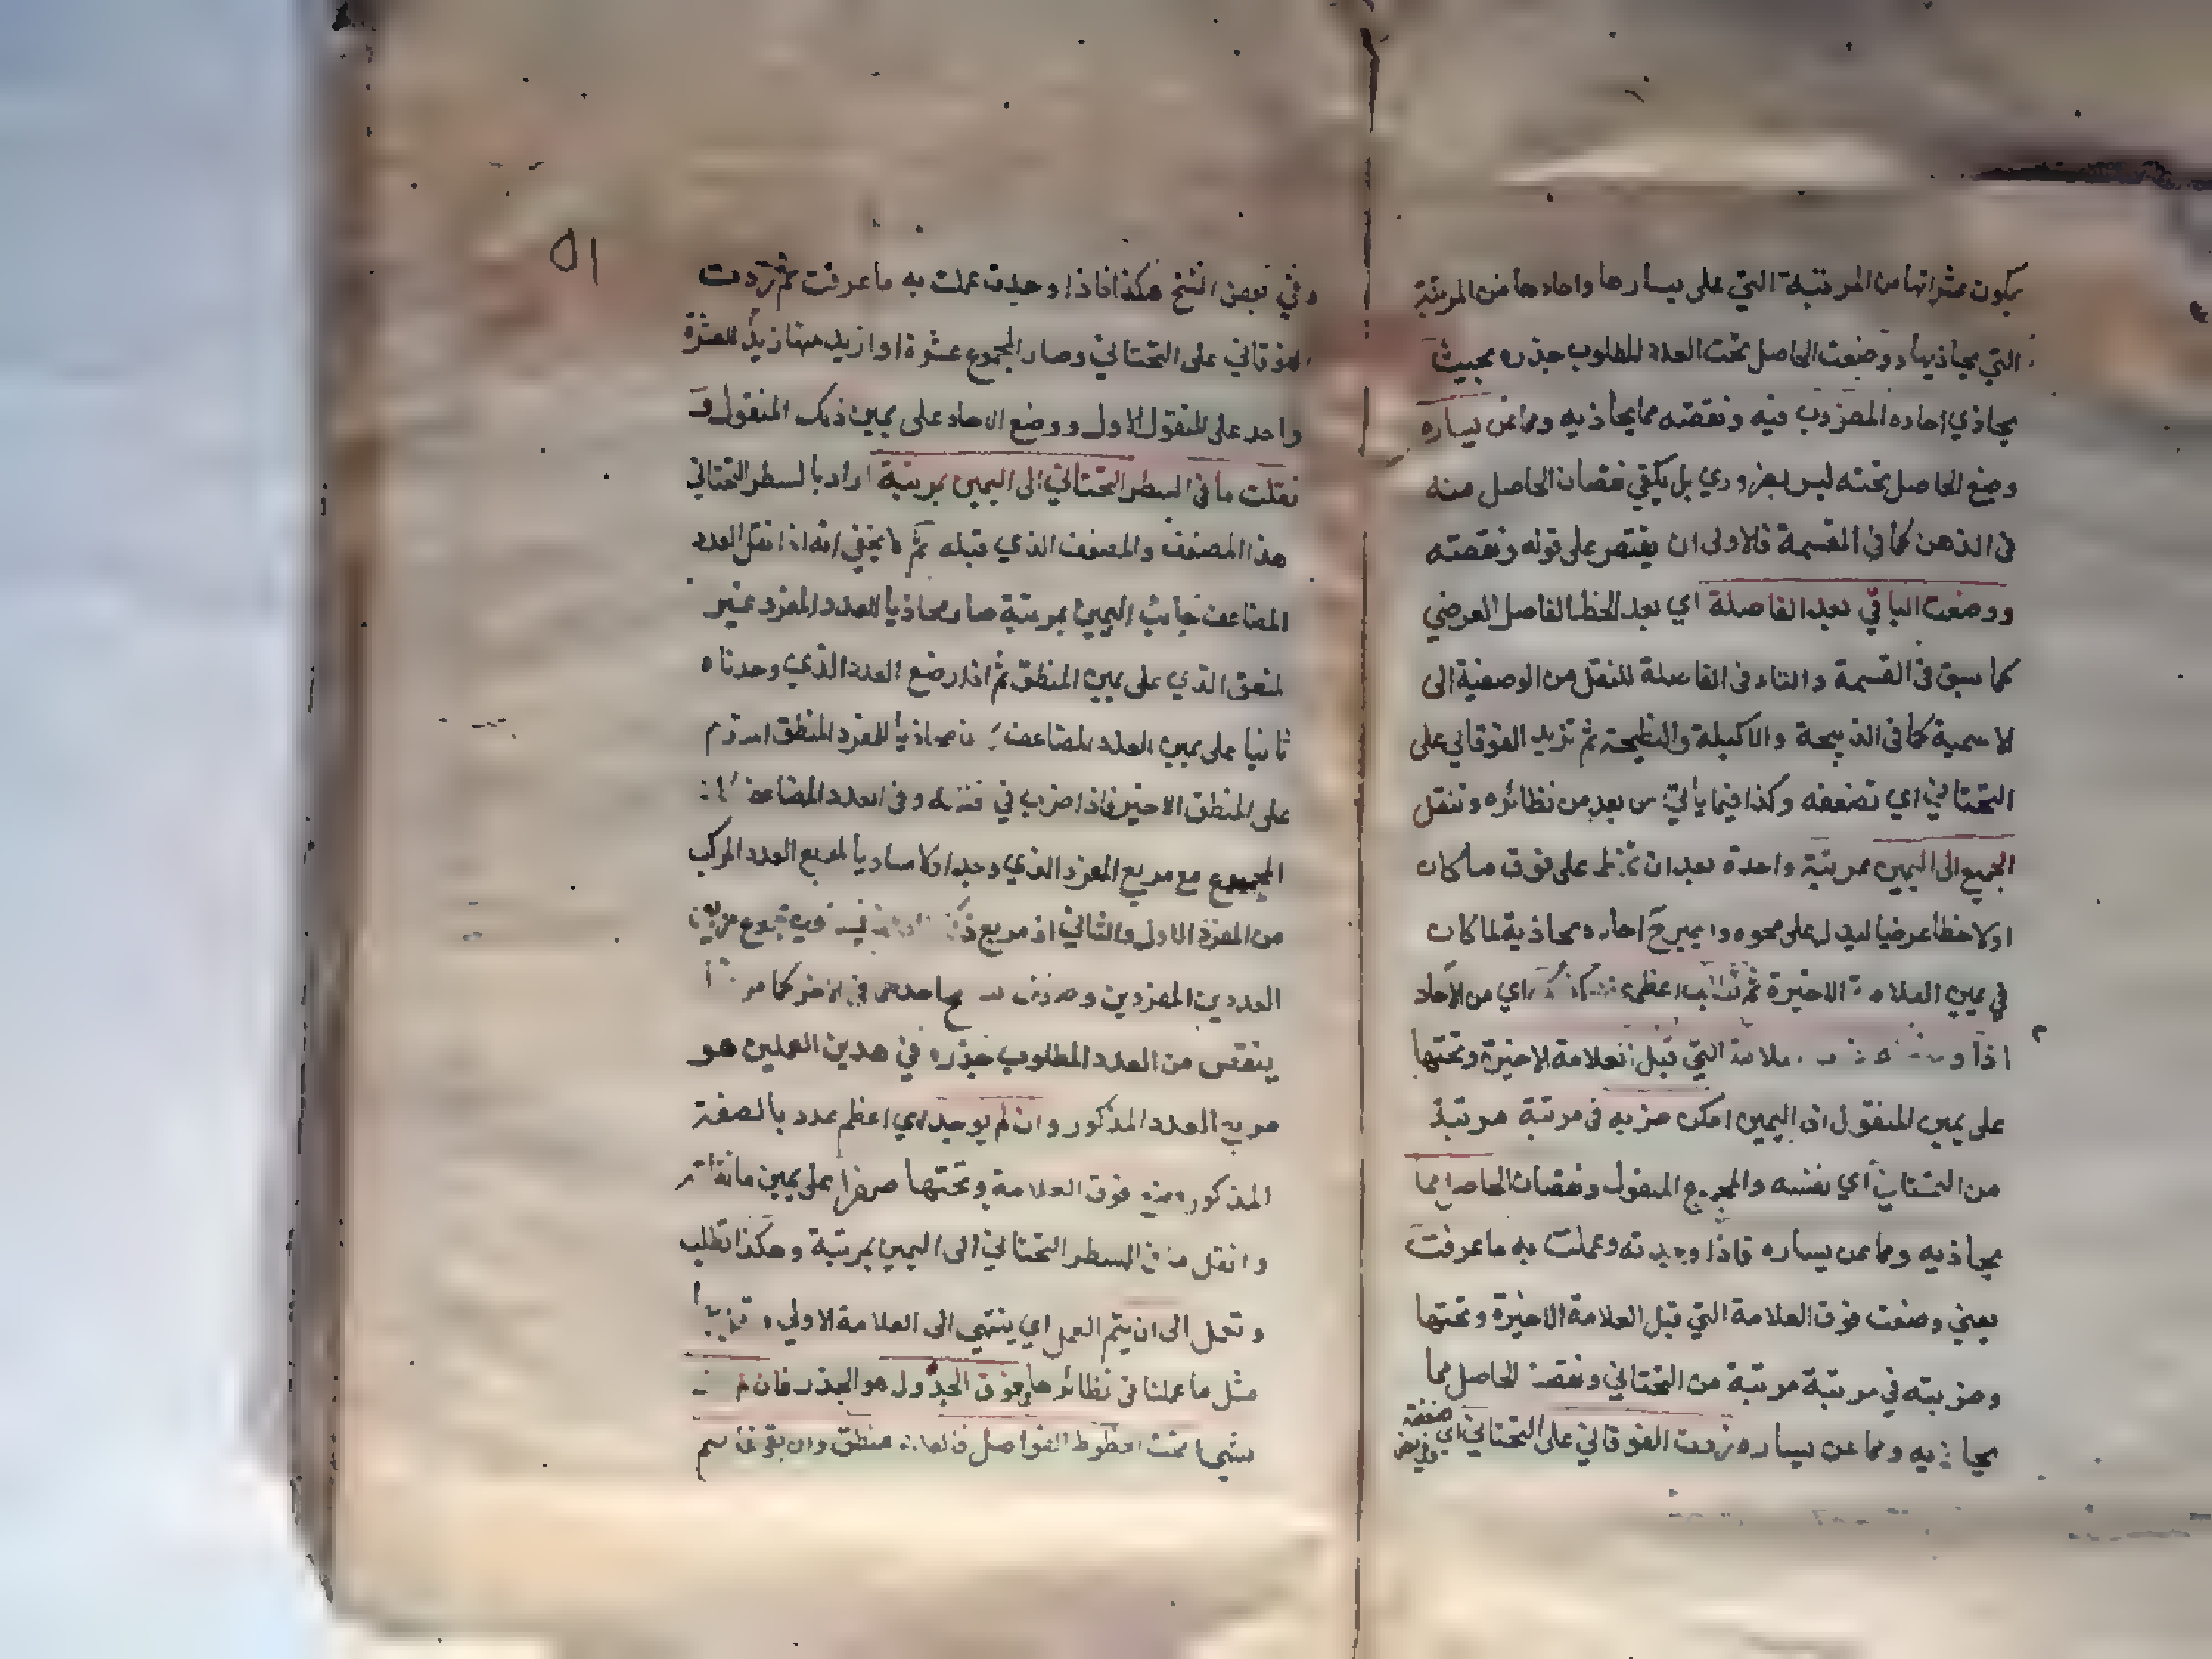 يكون عشراتها من المرتبة التي على يسارها واحادها من المرتبة
التي يحاذيها ووضعت الحاصل تحت العدد المطلوب جذره بحيث
يحاذي احاده المضروب فيه ونقصته مما يحاذيه ومما عن يساره
وضع الحاصل تحته ليس بضروري بل يكفي نقصان الحاصل منه
في الذهن كما في القسمة فالاولى ان يقتصر على قوله ونقصته
ووضعت الباقي بعد الفاصلة اي بعد الخط الفاصل العرضي
كما سبق في القسمة والتاء في الفاصلة للنقل من الوصفية الى
الاسمية كما في الذبيحة والاكيلة والنطيحة ثم تزيد الفوقاني على
التحتاني اي تضعفه وكذا فيما يأتي من بعد من نظائره وتنقل
الجميع الى اليمين بمرتبة واحدة بعد ان تخط على فوق ما كان
اولا خطا عرضيا ليدل على محوه واحاده محاذية لما كان
في يمين العلامة الاخيرة ثم تطلب اعظم عدد كذلك اي من الاحاد
اذا العلامة التي قبل العلامة الاخيرة وتحتها
على يمين المنقول الى اليمين امكن ضربه في مرتبة مرتبة
من التحتاني اي نفسه والمنقول ونقصان الحاصل مما
يحاذيه ومما عن يساره فاذا وجدته وعملت به ما عرفت
يعني وضعت فوق العلامة التي قبل العلامة الاخيرة وتحتها
وضربته في مرتبة مرتبة من التحتاني ونقصت الحاصل مما
يحاذيه ومما عن يساره زدت الفوقاني على التحتاني اي
ضعفته
وفي بعض
٥١
وفي بعض النسخ هكذا فاذا وجدت عملت به ما عرفت ثم زدت
الفوقاني على التحتاني وصار المجموع عشرة او ازيد منها زيد للعشرة
واحد على المنقول الاول ووضع الاحاد على يمين ذلك المنقول و
نقلت ما في السطر التحتاني الى اليمين بمرتبة اراد بالسطر التحتاني
هذا المضعف والمضعف الذي قبله ثم لا يخفى انه اذا نقل العدد
المضاعف جانب اليمين بمرتبة صار محاذيا للعدد المفرد غير
المنطق الذي على يمين المنطق ثم اذا وضع العدد الذي وجدناه
ثانيا على يمين العدد المضاعف محاذيا للمفرد المنطق المقدم
على المنطق الاخير فاذا ضرب في نفسه وفي العدد المضاعف كان
المجموع مع مربع المفرد الذي وجد اولا مساويا لمربع العدد المركب
من المفرد الاول والثاني اذ مربع مجموع مربعي
العددين المفردين وضعف احدهما في الاخر كما مر
ينقص من العدد المطلوب جذره في هذين العملين هو
مربع العدد المذكور وان لم يوجد اي اعظم عدد بالصفة
المذكورة فضع فوق العلامة وتحتها صفرا على يمين ما نقلت
وانقل ما في السطر التحتاني الى اليمين بمرتبة وهكذا تطلب
وتعمل الى ان يتم العمل اي ينتهي الى العلامة الاولى
مثل ما عملنا في نظائرها فما فوق الجدول هو الجذر فان لم يبق
شيء تحت الخطوط الفواصل فالعدد منطق وان بقي فاصم